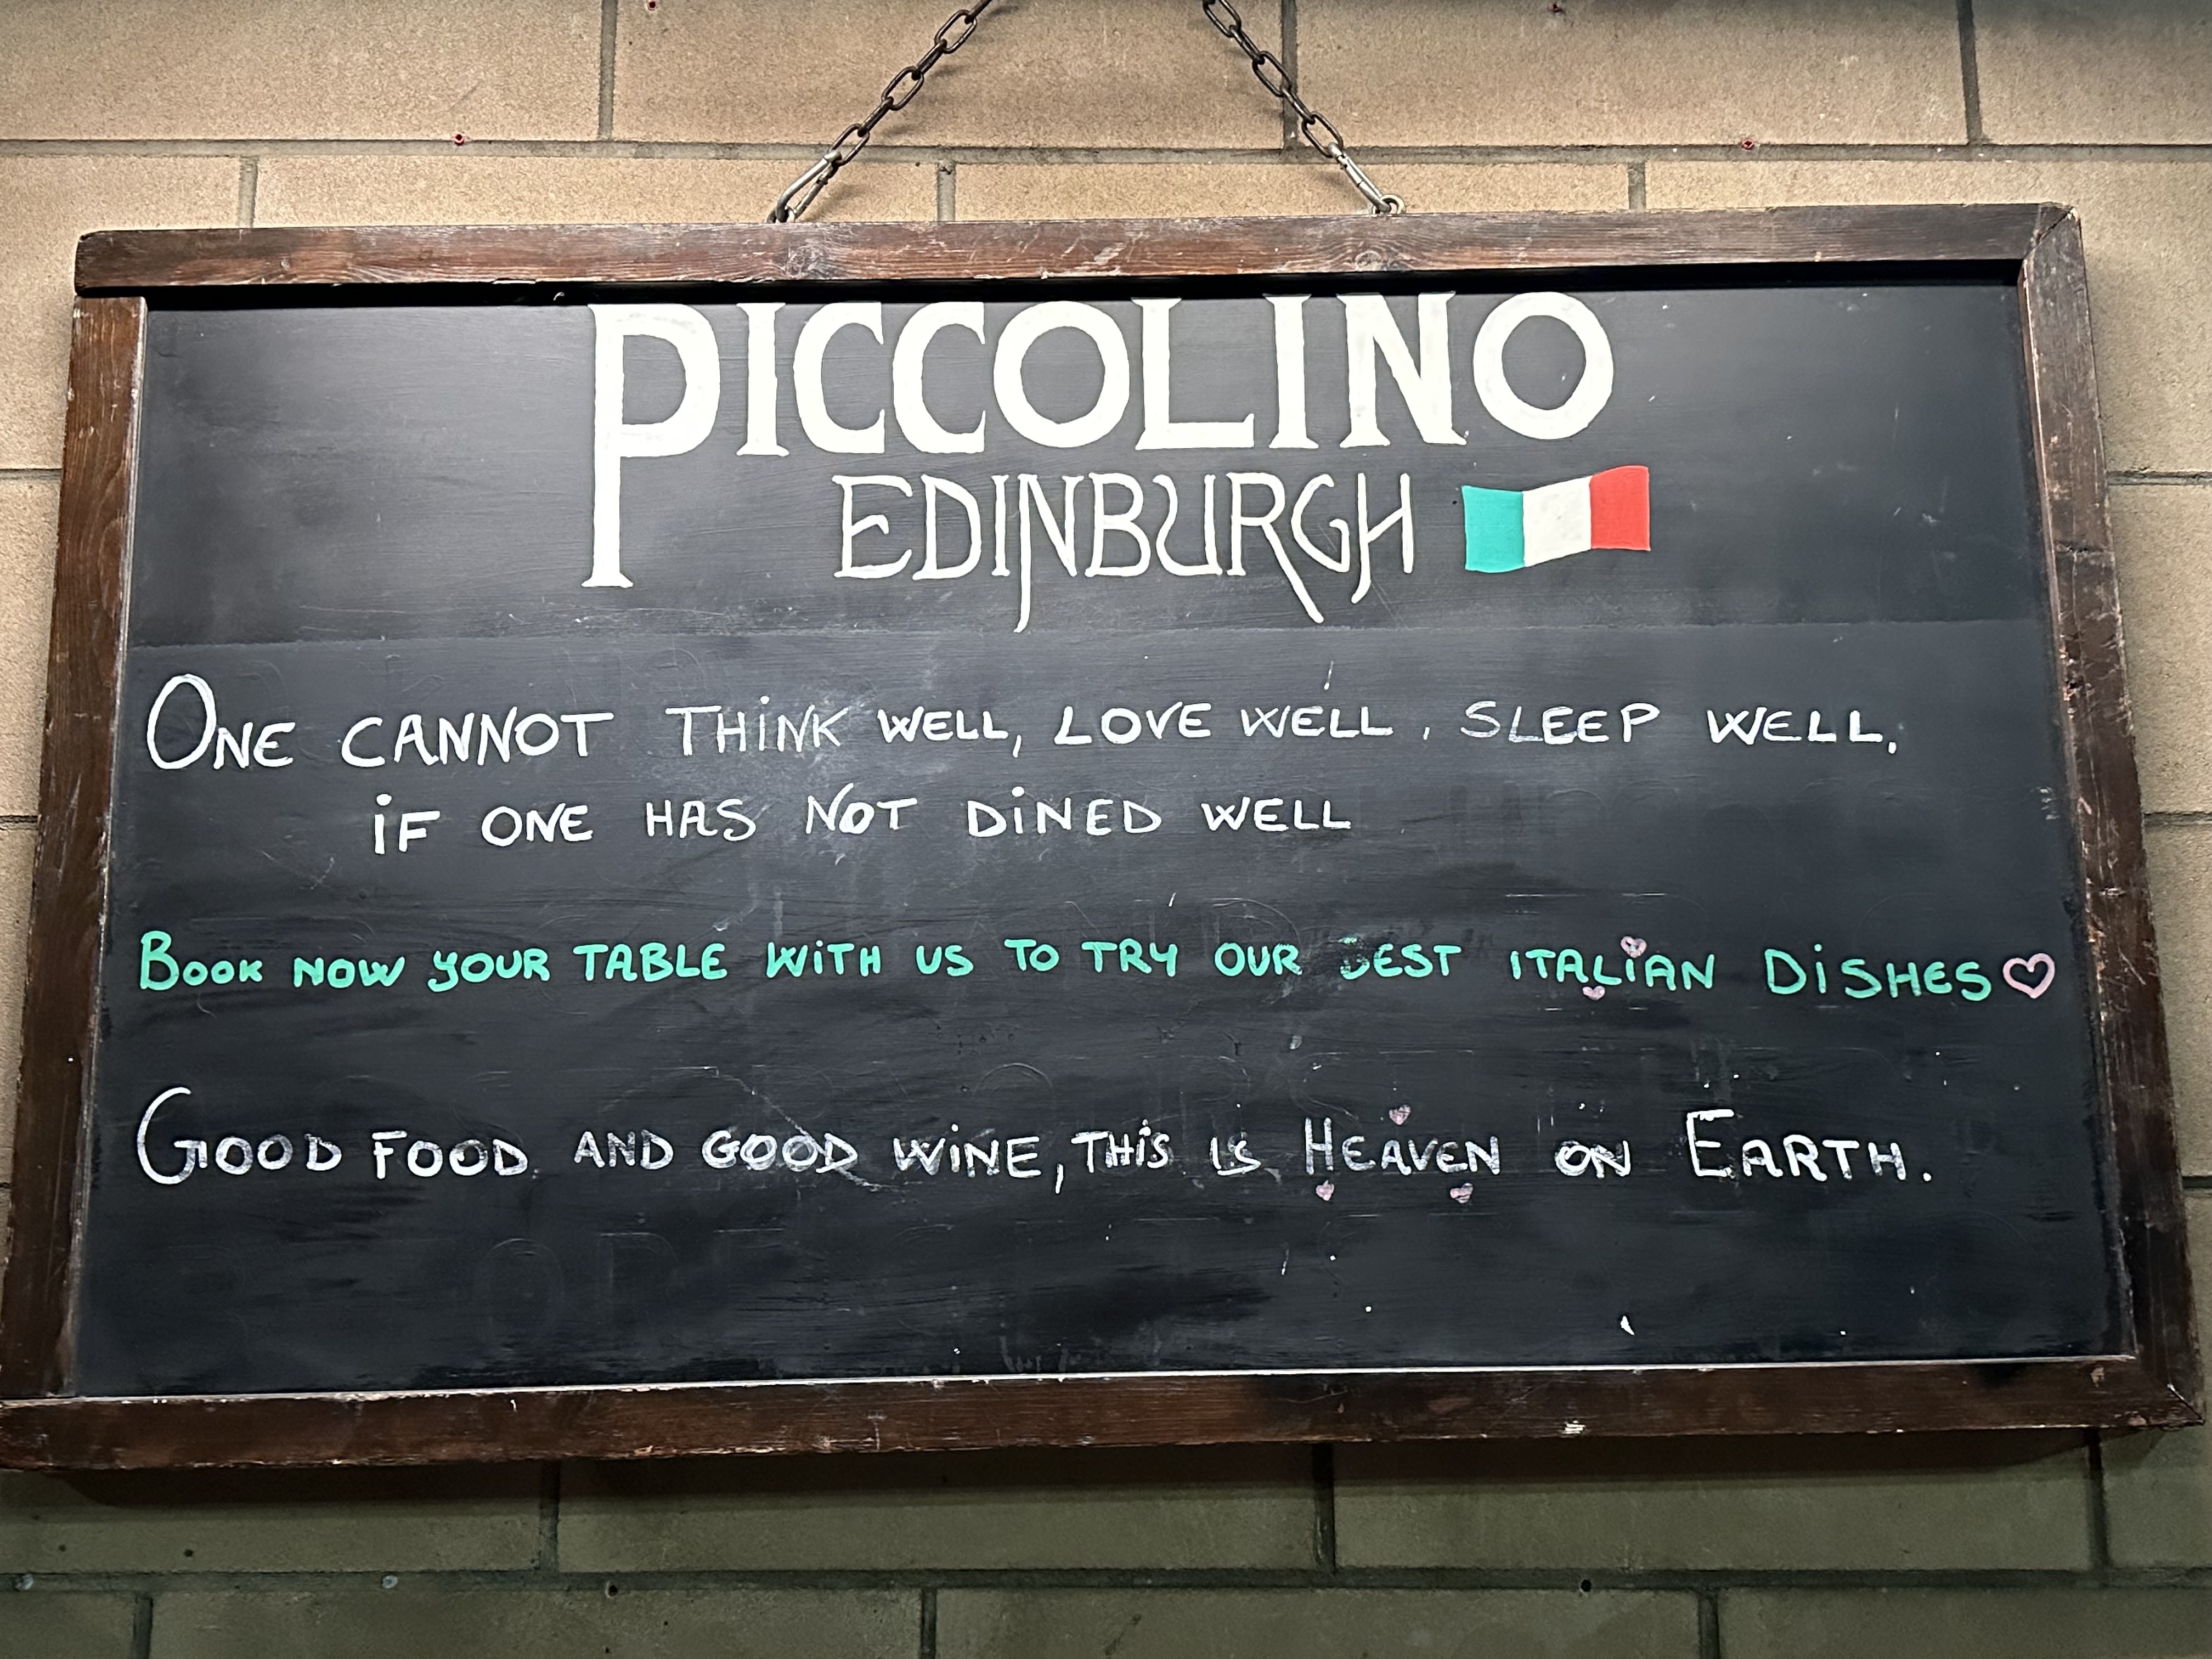 PICCOLINO
EDINBURGH
ONE CANNOT THiNK WELL, LOVE WELL, SLEEP WELL,
iF ONE HAS NOT DiNED WELL
BOOK NOW YOUR TABLE WiTH US TO TRY OUR BEST ITALiAN DiSHES♡
GOOD FOOD AND GOOD WiNE, THiS IS HEAVEN ON EARTH.